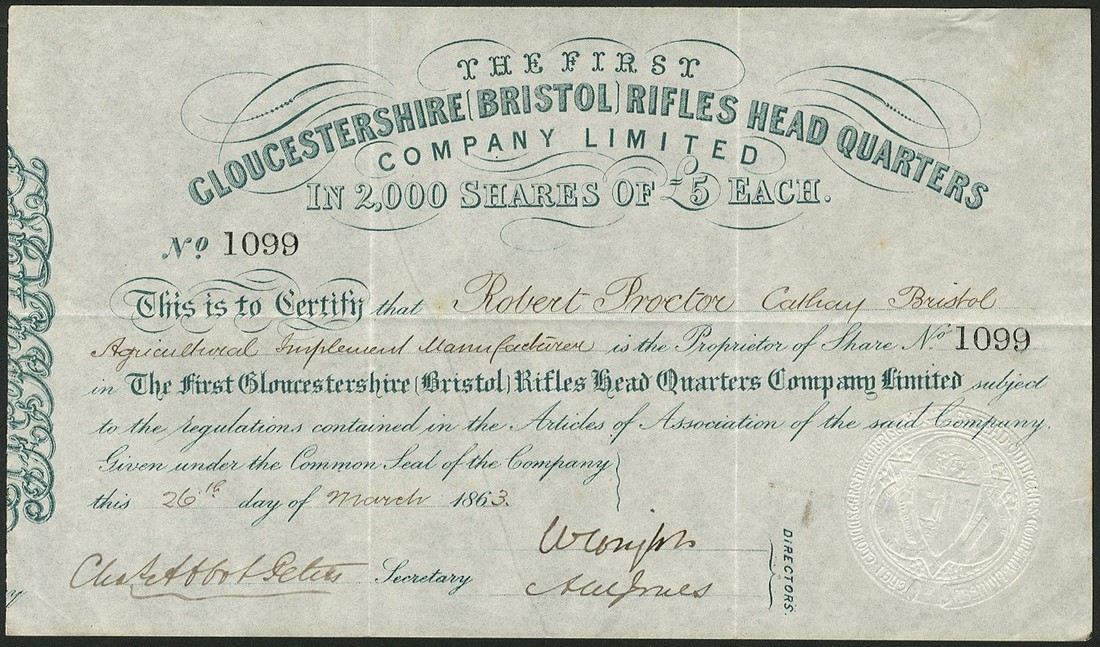 THE FIRST
GLOUCESTERSHIRE (BRISTOL) RIFLES HEAD QUARTERS
COMPANY LIMITED
IN 2,000 SHARES OF £5 EACH.
No. 1099
This is to Certify that Robert Proctor Cathay Bristol
Agricultural Implement Manufacturer is the Proprietor of Share No. 1099
in The First Gloucestershire (Bristol) Rifles Head Quarters Company Limited subject
to the regulations contained in the Articles of Association of the said Company.
Given under the Common Seal of the Company
this 26th day of March 1863.
Secretary
DIRECTORS.